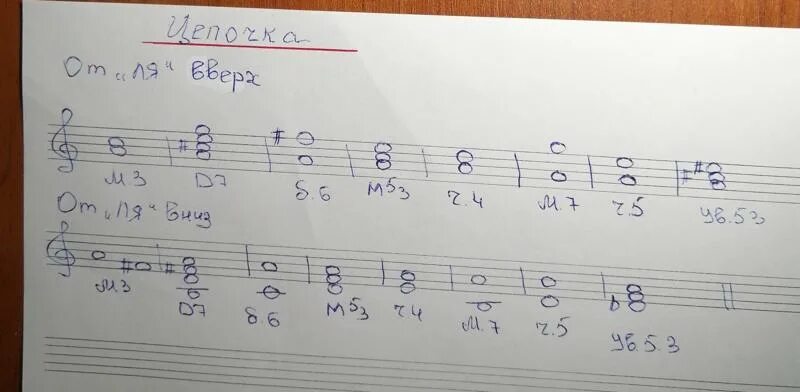 Цепочка
От „Ля“ вверх
м3 D7 б.6 М53 ч.4 м.7 ч.5 ув.53
От „Ля“ вниз
м3 D7 б.6 М53 ч4 м.7 ч.5 ув.5.3